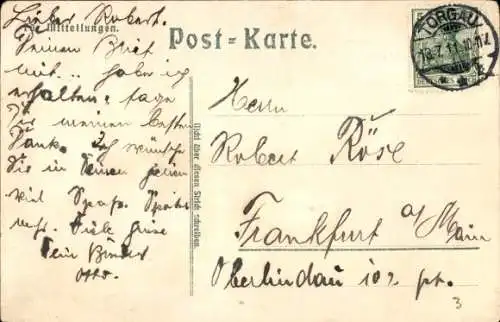 Lieber Robert.
Mitteilungen.
Deinen Brief
mit... habe ich
erhalten. sage
Dir meinen besten
Dank. Ich wünsche
Dir in Deinen
viel Spaß.
Viele Grüße
Dein Bruder
Otto.
Post-Karte.
TORGAU
Nicht über diesen Strich schreiben.
Herrn
Robert Röse
Frankfurt a/Main
Oberlindau 102 pt.
3